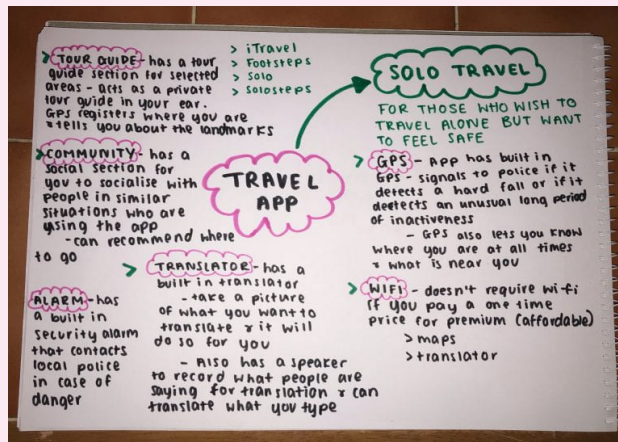 > TOUR GUIDE - has a tour
guide section for selected
areas - acts as a private
tour guide in your ear.
GPS registers where you are
& tells you about the landmarks
> iTravel
> Footsteps
> Solo
> Solosteps
SOLO TRAVEL
FOR THOSE WHO WISH TO
TRAVEL ALONE BUT WANT
TO FEEL SAFE
TRAVEL
APP
> COMMUNITY - has a
social section for
you to socialise with
people in similar
situations who are
using the app
- can recommend where
to go
> GPS - APP has built in
GPS - signals to police if it
detects a hard fall or if it
detects an unusual long period
of inactiveness
- GPS also lets you know
where you are at all times
& what is near you
> TRANSLATOR - has a
built in translator
- take a picture
of what you want to
translate & it will
do so for you
- Also has a speaker
to record what people are
saying for translation & can
translate what you type
ALARM - has
a built in
security alarm
that contacts
local police
in case of
danger
> WIFI - doesn't require wi-fi
if you pay a one time
price for premium (affordable)
> maps
> translator